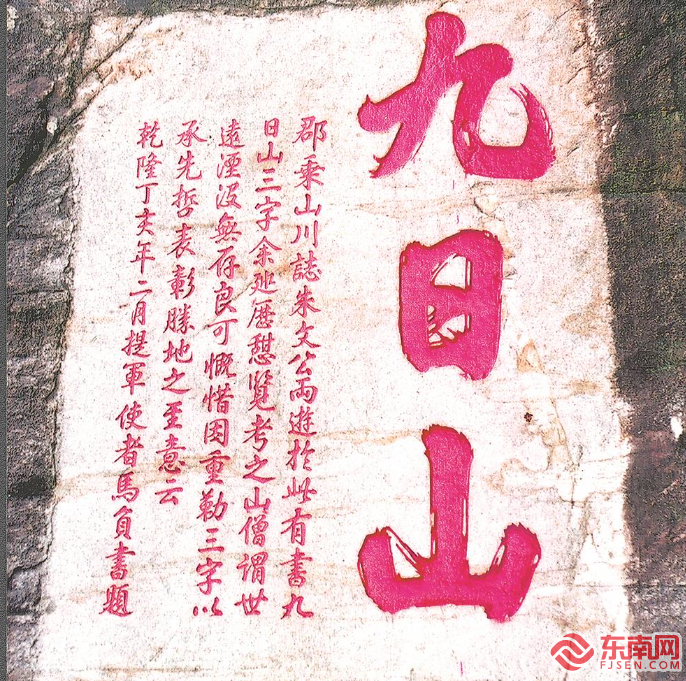 九日山
郡乘山川誌朱文公兩遊於此有書九
日山三字余巡歷憩覽考之山僧謂世
遠湮没無存良可慨惜因重勒三字以
承先哲表彰勝地之至意云
乾隆丁亥年二月提軍使者馬負書題
东南网
FJSEN.COM